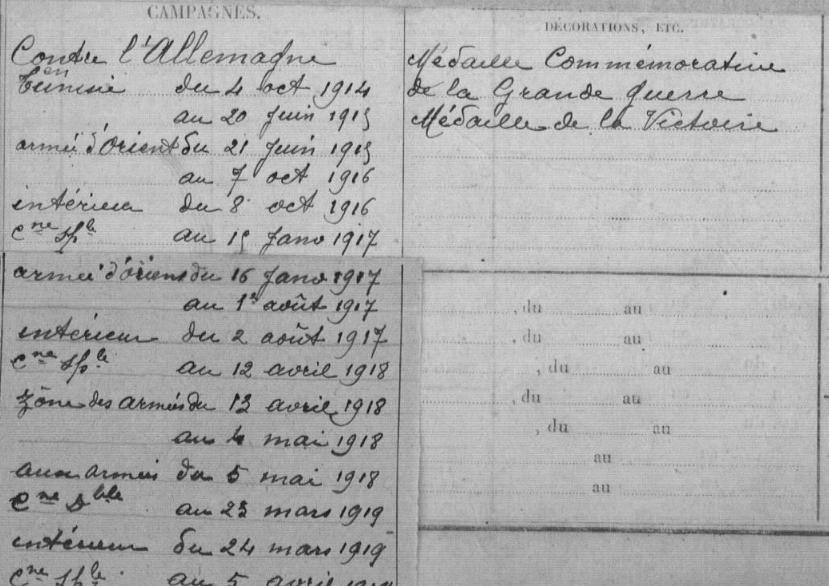 CAMPAGNES.
Contre l'Allemagne
en
Tunisie du 4 oct 1914
au 20 juin 1915
armée d'Orient du 21 juin 1915
au 7 oct 1916
intérieur du 8 oct 1916
Cne Sple au 15 janv 1917
armée d'Orient du 16 janv 1917
au 1er août 1917
intérieur du 2 août 1917
Cne Sple au 12 avril 1918
zône des armées du 13 avril 1918
au 4 mai 1918
aux armées du 5 mai 1918
Cne Dble au 23 mars 1919
intérieur du 24 mars 1919
Cne Sple au 5 avril 1919
DÉCORATIONS, ETC.
Médaille Commémorative
de la Grande guerre
Médaille de la Victoire
, du au
, du au
, du au
, du au
, du au
au
au